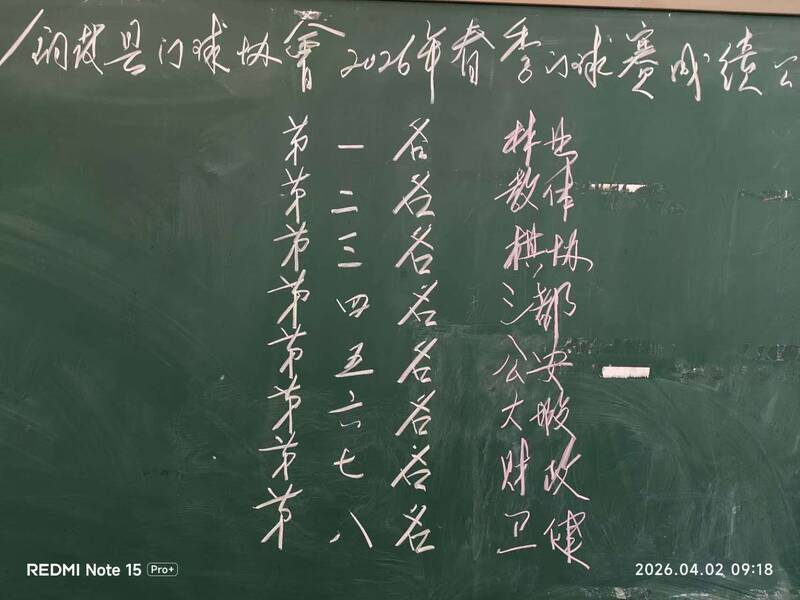 县门球协会2026年春季门球赛成绩公
第一名 林业
第二名 教体
第三名 棋协
第四名 三都
第五名 公安
第六名 大塅
第七名 财政
第八名 卫健
REDMI Note 15 Pro+
2026.04.02 09:18